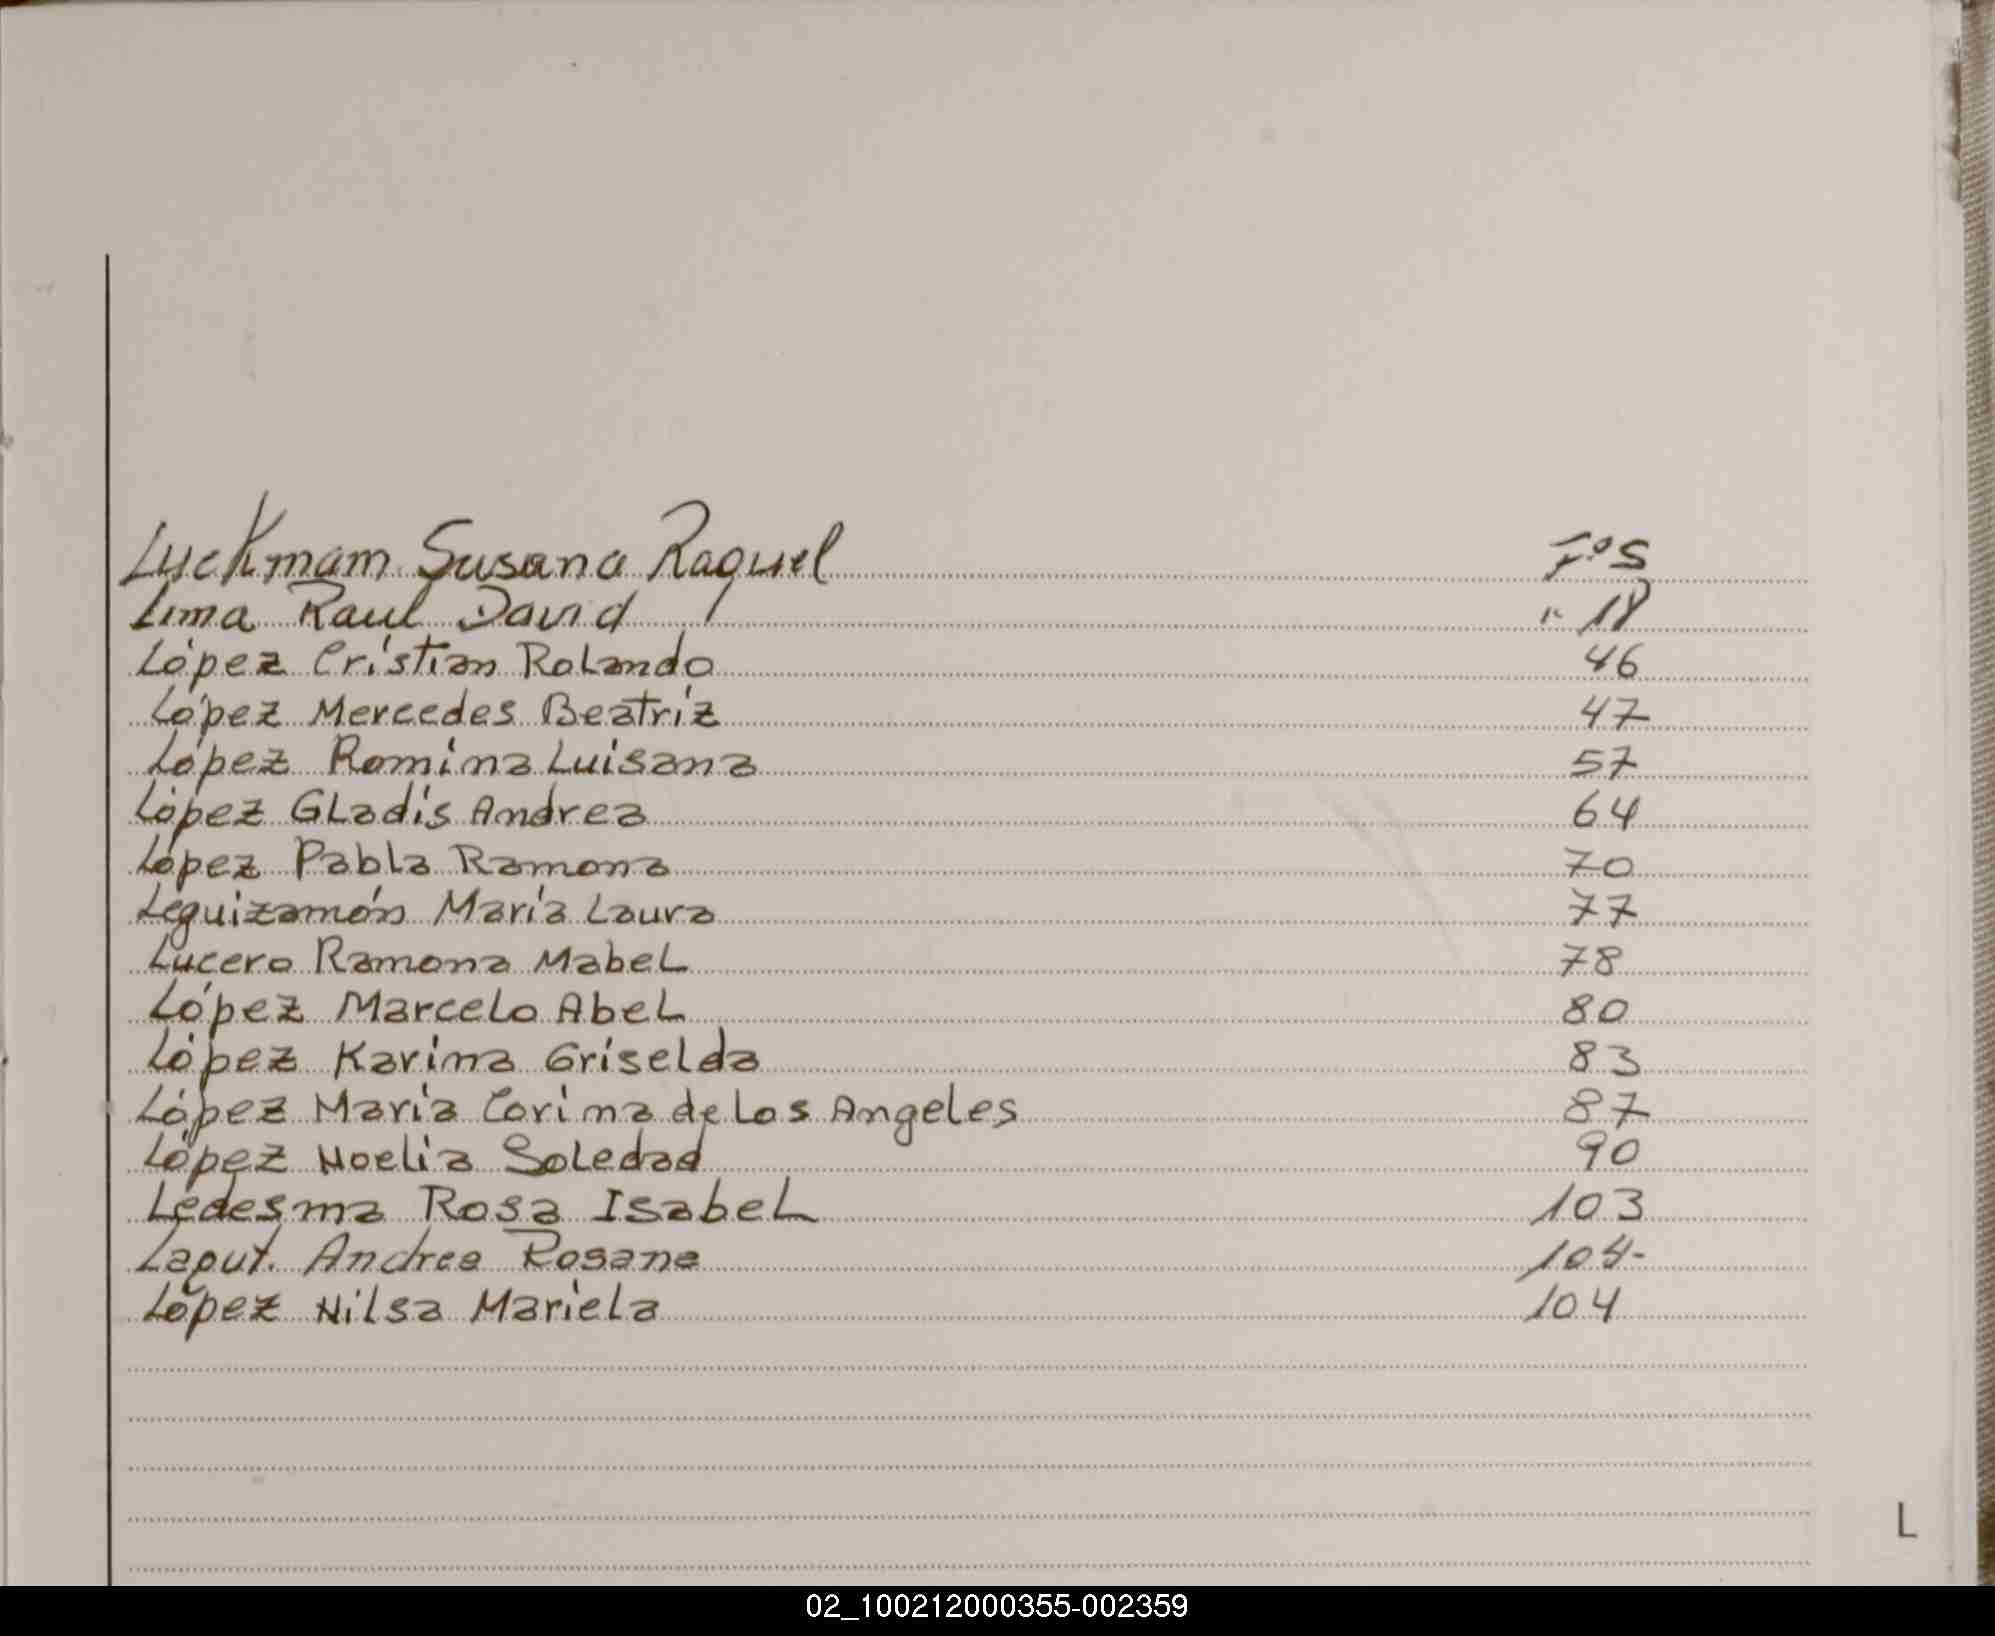 Luckmam Susana Raquel Fº 5
Lima Raul David " 18
López Cristian Rolando 46
López Mercedes Beatriz 47
López Romina Luisana 57
López Gladis Andrea 64
López Pabla Ramona 70
Leguizamón María Laura 77
Lucero Ramona Mabel 78
López Marcelo Abel 80
López Karina Griselda 83
López María Corina de Los Angeles 87
López Noelia Soledad 90
Ledesma Rosa Isabel 103
Laput. Andrea Rosana 104-
López Nilsa Mariela 104
L
02_100212000355-002359